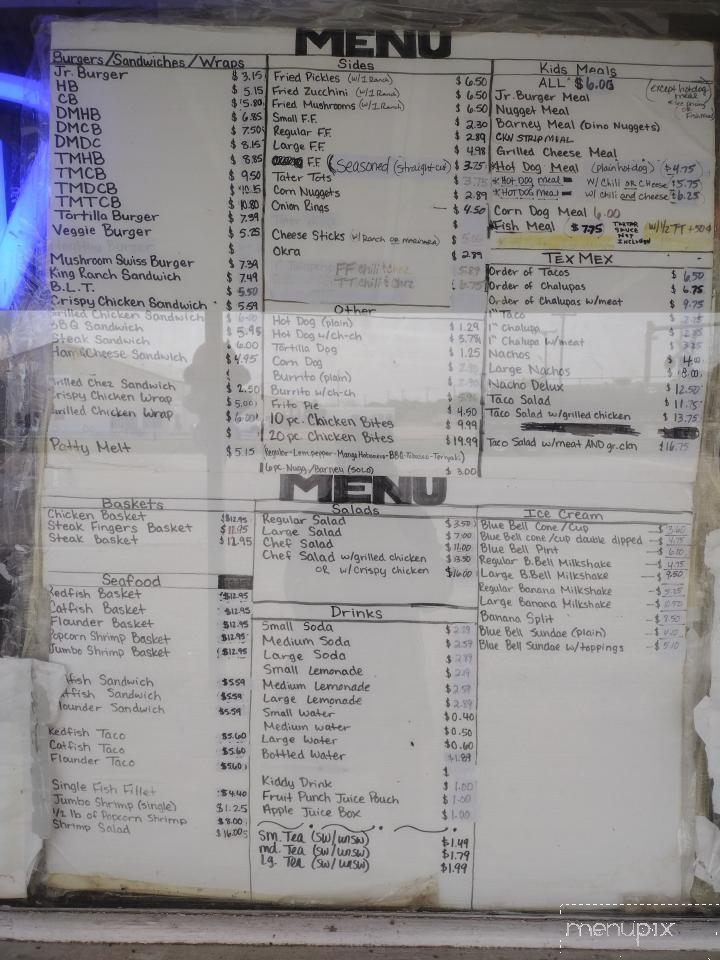 MENU
Burgers/Sandwiches/Wraps
Jr. Burger $3.15
HB $5.15
CB $5.80
DMHB $6.85
DMCB $7.50
DMDC $8.15
TMHB $8.85
TMCB $9.50
TMDCB $10.15
TMTCB $10.80
Tortilla Burger $7.39
Veggie Burger $5.25
Mushroom Swiss Burger $7.39
King Ranch Sandwich $7.49
B.L.T. $5.50
Crispy Chicken Sandwich $5.59
Grilled Chicken Sandwich
BBQ Sandwich $5.95
Steak Sandwich $6.00
Ham & Cheese Sandwich $4.95
Grilled Chez Sandwich $2.50
Crispy Chicken Wrap $5.00
Grilled Chicken Wrap $6.00
Patty Melt $5.15
Sides
Fried Pickles (w/1 Ranch) $6.50
Fried Zucchini (w/1 Ranch) $6.50
Fried Mushrooms (w/1 Ranch) $6.50
Small F.F. $2.30
Regular F.F. $2.89
Large F.F. $4.98
F.F (Seasoned (straight-cut) $3.75
Tater Tots $3.75
Corn Nuggets $2.89
Onion Rings $4.50
Cheese Sticks (w/Ranch or marinara)
Okra $2.89
FF chili & chez
TT chili & chez
Other
Hot Dog (plain) $1.29
Hot Dog w/ch-ch
Tortilla Dog $1.25
Corn Dog
Burrito (plain)
Burrito w/ch-ch
Frito Pie $4.50
10 pc. Chicken Bites $9.99
20 pc. Chicken Bites $19.99
Regular-Lem.pepper-Mango Habanero-BBQ-Tobasco-Teriyaki)
6 pc. Nugg/Barney (SOLO) $3.00
Kids Meals
ALL $6.00
(except hotdog
meal
Fish Meal)
Jr. Burger Meal
Nugget Meal
Barney Meal (Dino Nuggets)
CKN STRIP MEAL
Grilled Cheese Meal
*Hot Dog Meal (plain hotdog) $4.75
*HOT DOG meal w/ Chili OR Cheese $5.75
*HOT DOG meal w/ chili and cheese $6.25
Corn Dog Meal 6.00
*Fish Meal ($7.75 TARTAR SAUCE NOT INCLUDED w/ 1/2 TT +50¢
TEX MEX
Order of Tacos $6.50
Order of Chalupas $6.75
Order of Chalupas w/meat $9.75
1" Taco
1" Chalupa
1" Chalupa w/meat
Nachos $4.00
Large Nachos $8.00
Nacho Delux $12.50
Taco Salad $11.75
Taco Salad w/grilled chicken $13.75
Taco Salad w/meat AND gr.ckn $16.75
MENU
Baskets
Chicken Basket $12.95
Steak Fingers Basket $11.95
Steak Basket $12.95
Seafood
Redfish Basket $12.95
Catfish Basket $12.95
Flounder Basket $12.95
Popcorn Shrimp Basket $12.95
Jumbo Shrimp Basket $12.95
Sandwich $5.59
Catfish Sandwich $5.59
Flounder Sandwich $5.59
Redfish Taco $5.60
Catfish Taco $5.60
Flounder Taco $5.60
Single Fish Fillet $4.40
Jumbo Shrimp (single) $1.25
1/2 lb of Popcorn Shrimp $8.00
Shrimp Salad $16.00
Salads
Regular Salad $3.50
Large Salad $7.00
Chef Salad $11.00
Chef Salad w/grilled chicken $13.50
OR w/crispy chicken $16.00
Drinks
Small Soda
Medium Soda $2.59
Large Soda $2.89
Small Lemonade $2.19
Medium Lemonade $2.59
Large Lemonade $2.89
Small Water $0.40
Medium water $0.50
Large Water $0.60
Bottled Water $1.89
$
Kiddy Drink $1.00
Fruit Punch Juice Pouch $1.00
Apple Juice Box $1.00
Sm. Tea (SW/UNSW) $1.49
md. Tea (SW/UNSW) $1.79
Lg. Tea (SW/UNSW) $1.99
Ice Cream
Blue Bell Cone/Cup
Blue Bell cone/cup double dipped
Blue Bell Pint
Regular B.Bell Milkshake
Large B.Bell Milkshake
Regular Banana Milkshake
Large Banana Milkshake
Banana Split
Blue Bell Sundae (plain)
Blue Bell Sundae w/toppings
menupix